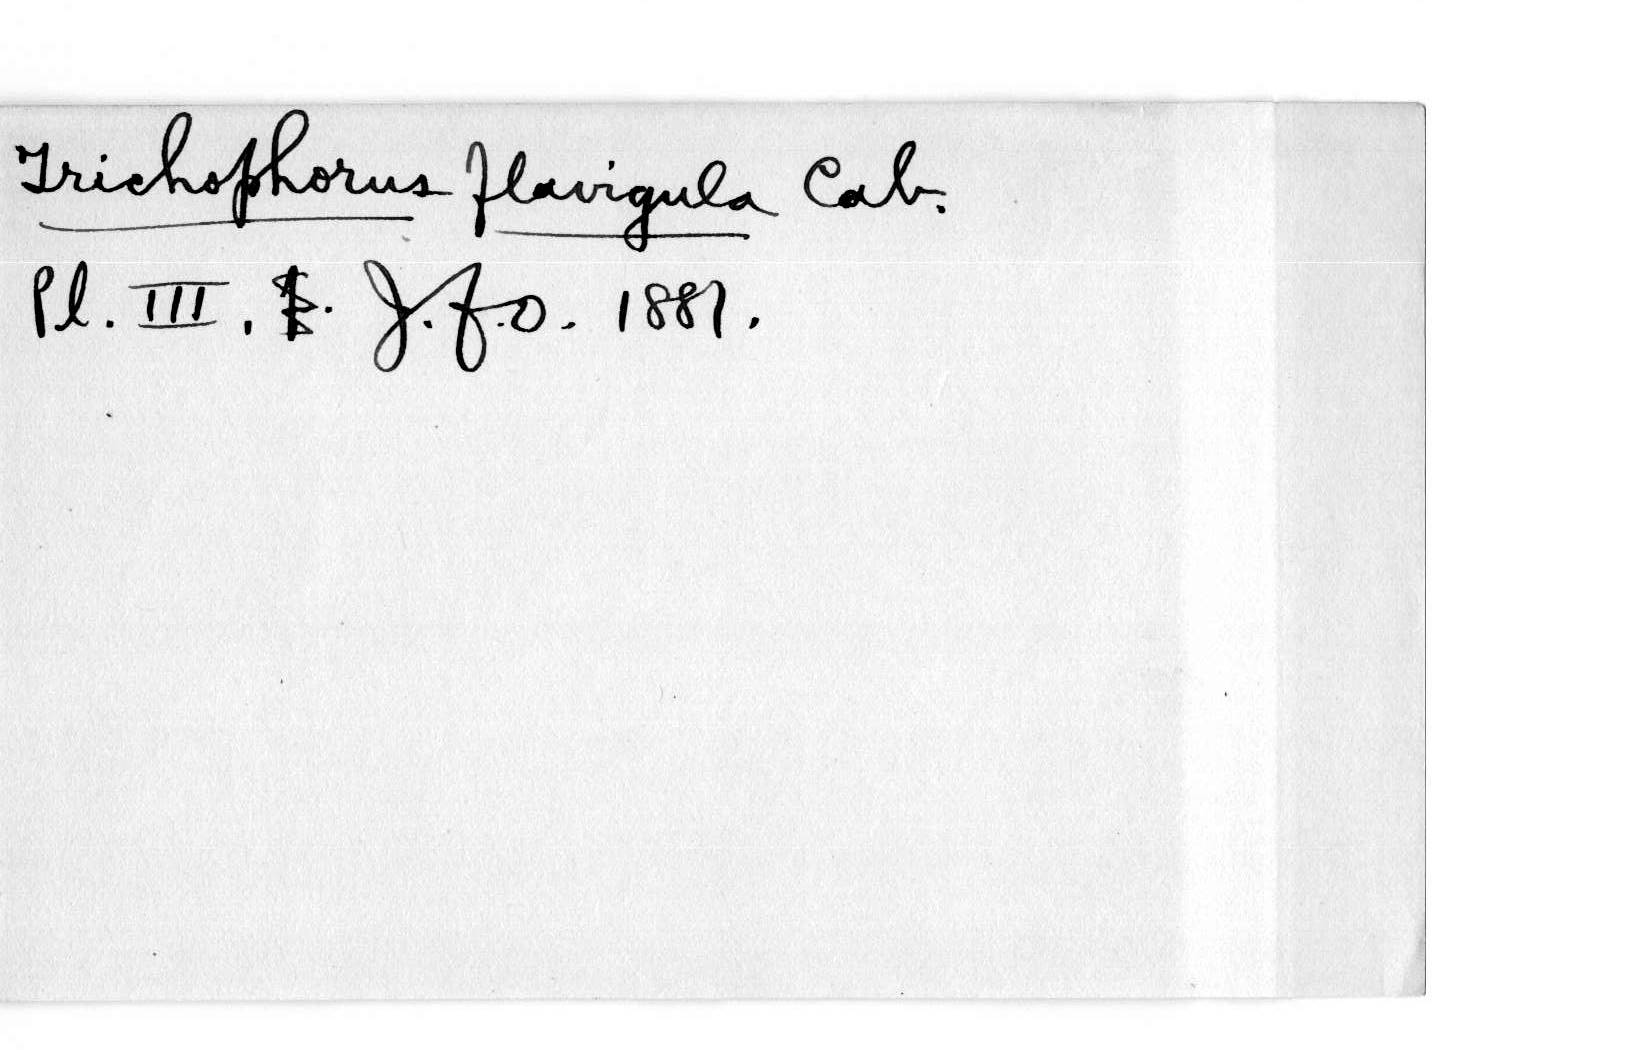 Trichophorus flavigula Cab.
Pl. III, J.f.O. 1881.